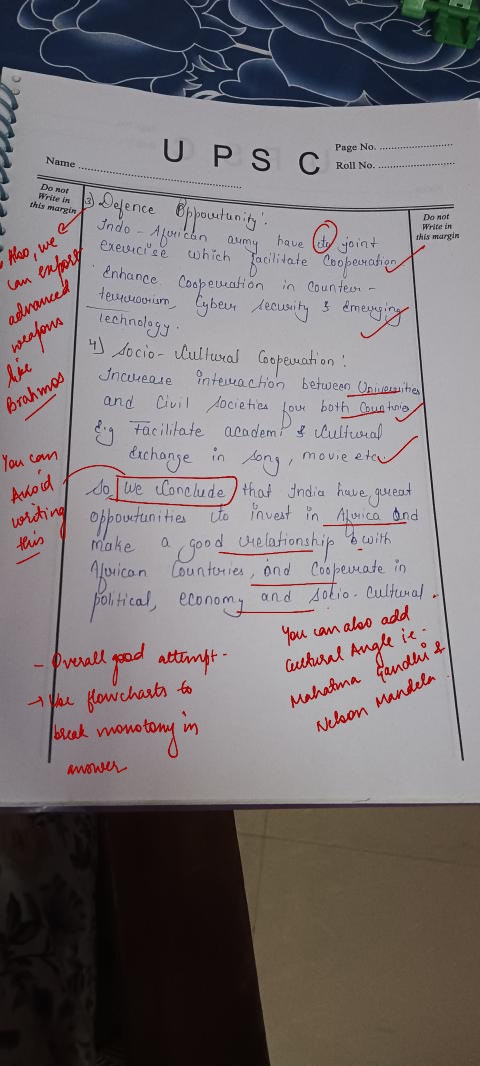 UPSC
Page No. ..........................
Name .......................................................
Roll No. ............................
Do not
Write in
this margin
Do not
Write in
this margin
3) Defence Opportunity :
Indo - African army have to joint
exercise which facilitate Cooperation
Enhance Cooperation in counter -
terrorism, Cyber security & Emerging
Technology.
Also, we
can export
advanced
weapons
like
Brahmos
4) Socio - Cultural Cooperation :
Increase interaction between Universities
and Civil Societies for both Countries
E.g Facilitate academi & Cultural
Exchange in song, movie etc.
You can
Avoid
writing
this
So we Conclude that India have great
opportunities to invest in Africa and
make a good relationship with
African Countries, and Cooperate in
political, economy and Socio - Cultural.
- Overall good attempt -
→ Use flowcharts to
break monotony in
answer
You can also add
Cultural Angle ie -
Mahatma Gandhi &
Nelson Mandela.